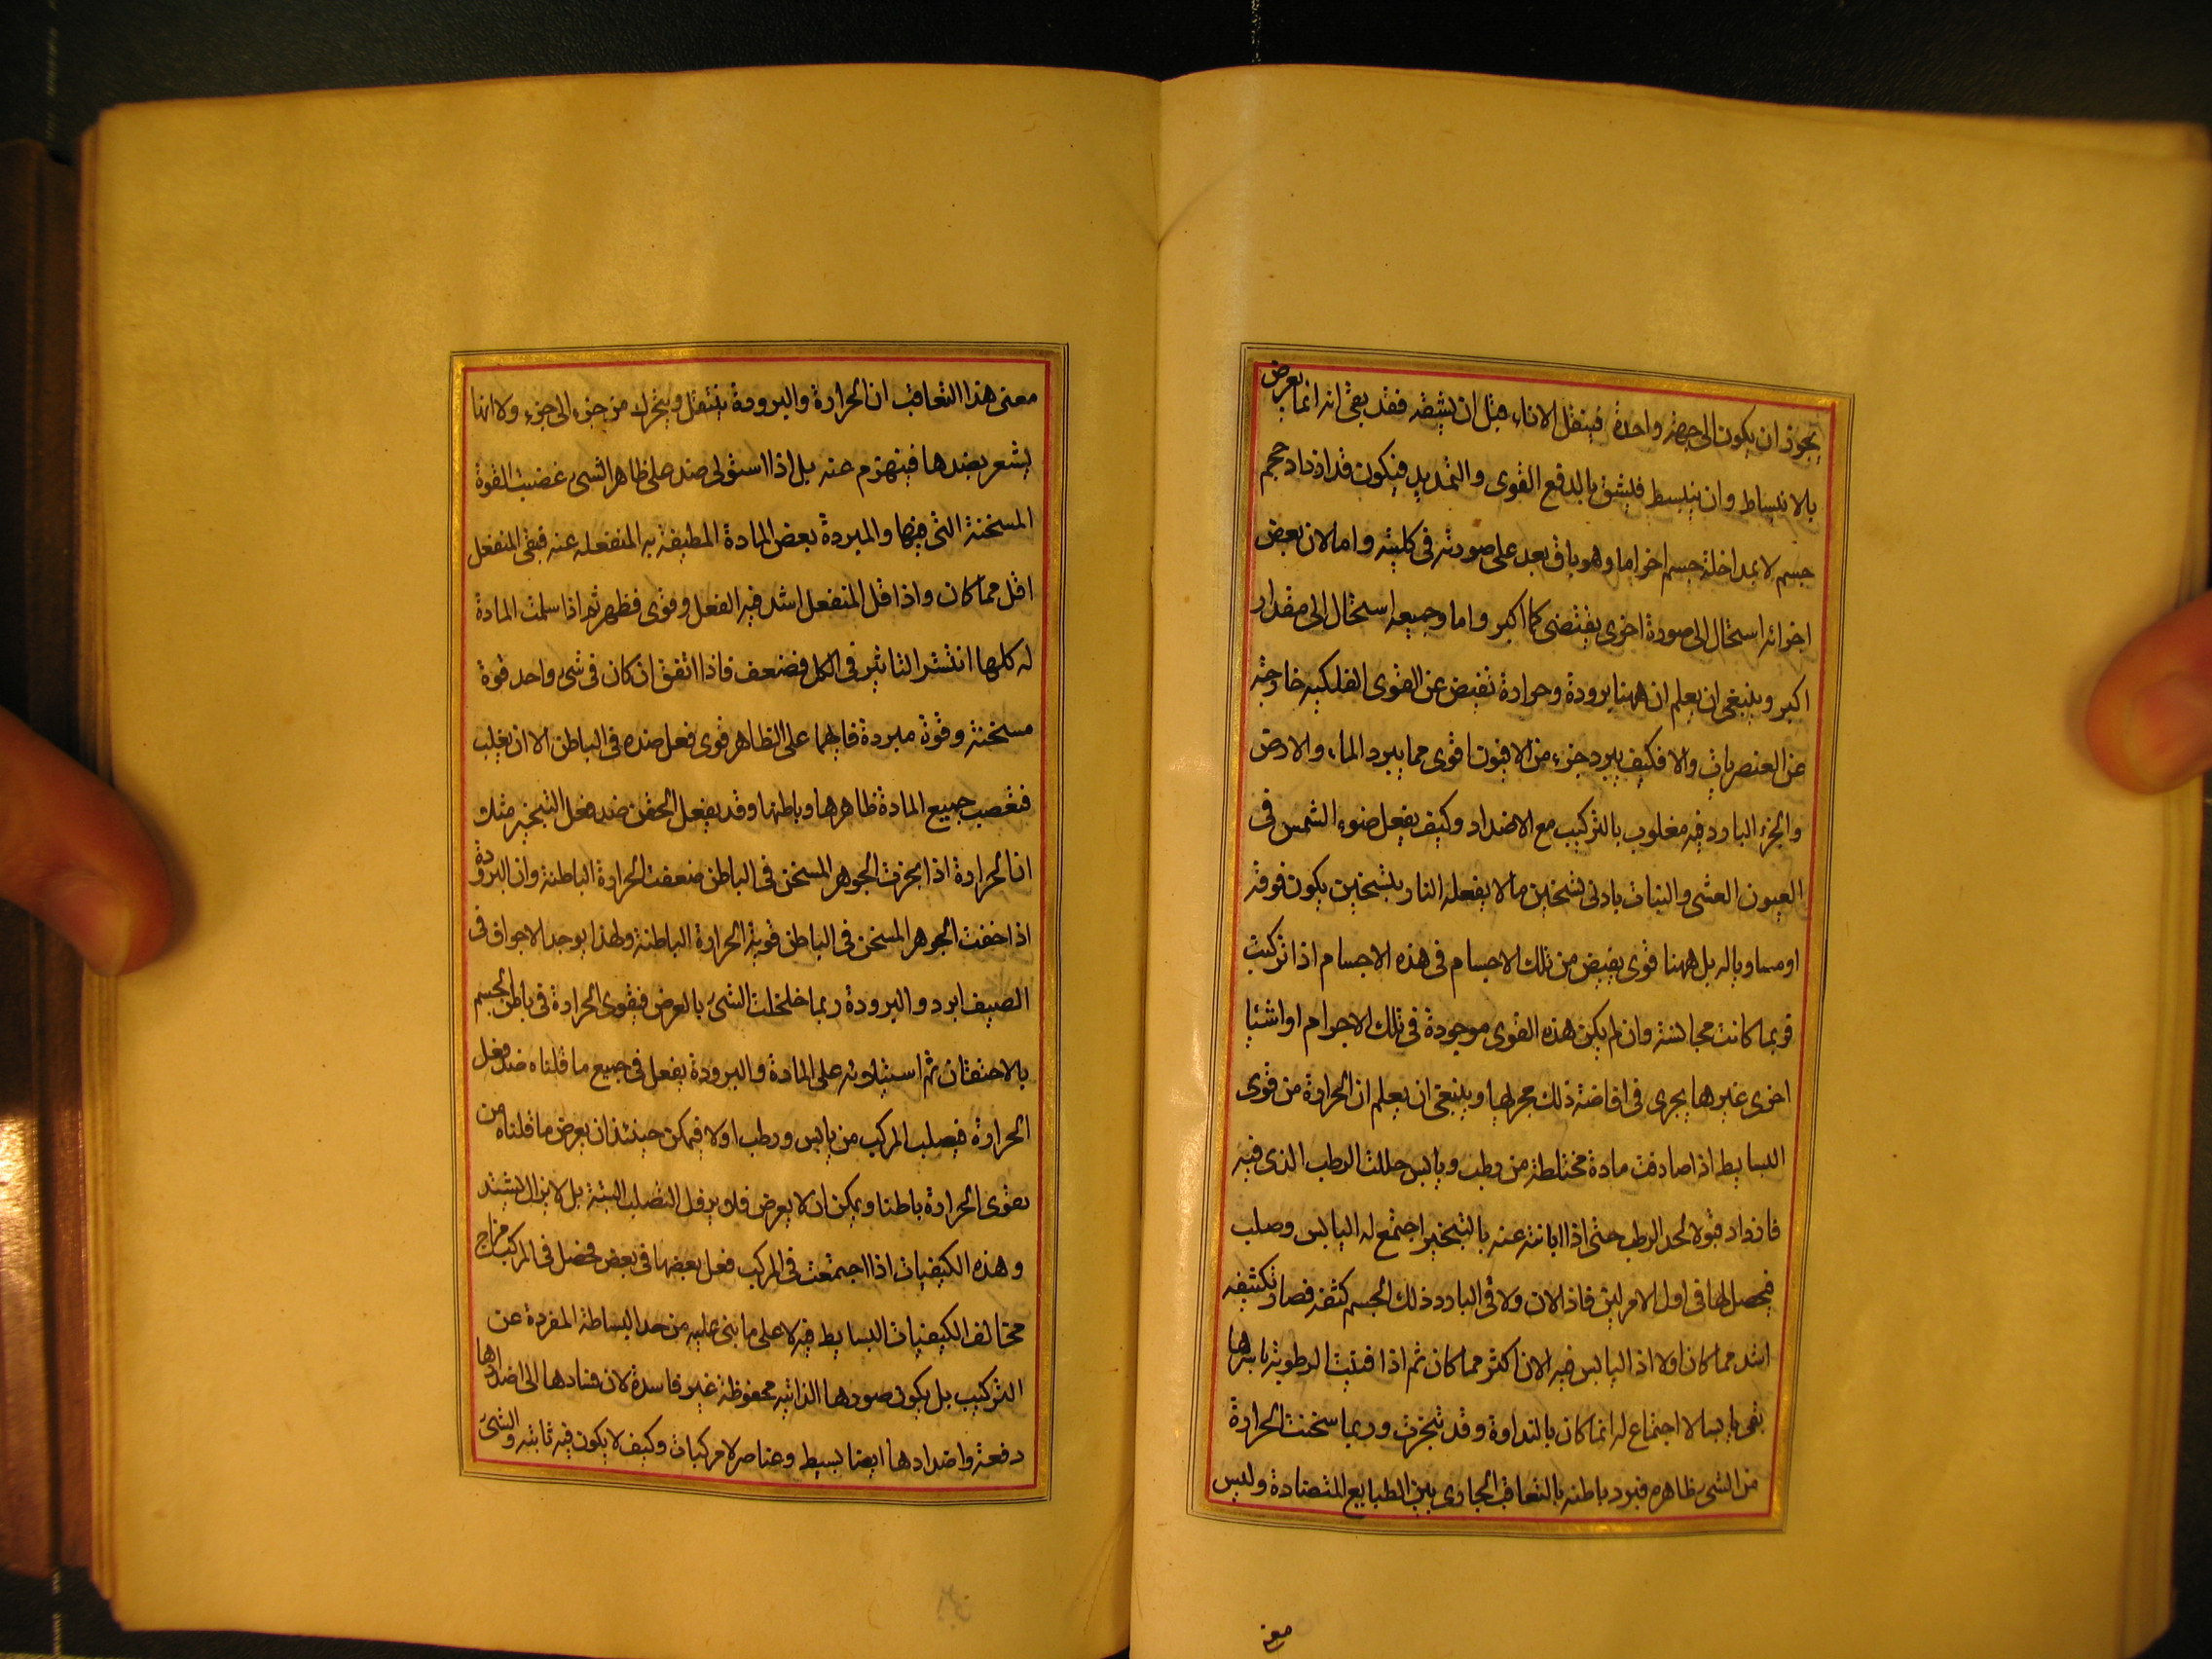 يجوز ان يكون الى جهة واحدة فينقل الاناء قبل ان يشقه فقد بقى انه انما يعرض
بالانبساط وان ينبسط فليشق بالدفع القوى والتمديد فيكون قد ازداد حجم
جسم لا بمداخلة جسم اخر اما وهو باق بعد على صورته فى كليته واما لان بعض
اجزائه استحال الى صورة اخرى يقتضى كما اكبر واما وجميعه استحال الى مقدار
اكبر وينبغى ان يعلم ان ههنا برودة وحرارة تفيض عن القوى الفلكيه خارجة
عن العنصريات والا فكيف يبرد جزء من الافيون اقوى مما يبرد الماء والارض
والجزء البارد فيه مغلوب بالتركيب مع الاضداد وكيف يفعل ضوء الشمس فى
العيون العشى والنبات بادنى تسخين ما لا يفعله النار بتسخين يكون فوقه
او مساويا له بل ههنا قوى يفيض من تلك الاجسام فى هذه الاجسام اذا تركبت
فربما كانت مجانسة وان لم يكن هذه القوى موجودة فى تلك الاجرام او اشيا
اخرى غيرها يجرى فى افاضة ذلك مجراها وينبغى ان يعلم ان الحرارة من قوى
البسايط اذا صادفت مادة مختلطة من رطب ويابس حللت الرطب الذى فيه
فازداد قبولا لحد الرطب حتى اذا ابانته عنه بالتبخير اجتمع له اليابس وصلب
فيحصل لها فى اول الامر لين فاذا لان ولاقى البارد ذلك الجسم كثفه فصار تكثيفه
اشد مما كان اولا اذ اليابس فيه الان اكثر مما كان ثم اذا فنيت الرطوبة باسرها
بقى يابسا لا اجتماع له انما كان بالنداوة وقد تبخرت وربما سخنت الحرارة
من الشىء ظاهره فبرد باطنه بالتعاقب الجارى بين الطبايع المتضادة وليس
معنى
معنى هذا التعاقب ان الحرارة والبرودة ينتقل ويتحرك من جزء الى جزء ولا انها
يشعر بضدها فينهزم عنه بل اذا استولى ضد على ظاهر الشىء غصبت القوة
المسخنة التى فيها والمبردة بعض المادة المطيفة به المنفعله عنه فبقى المنفعل
اقل مما كان واذا قل المنفعل اشد فيه الفعل وقوى فظهر ثم اذا سلمت المادة
له كلها انتشر التاثير فى الكل فضعف فاذا اتفق ان كان فى شىء واحد قوة
مسخنة وقوة مبردة فايهما على الظاهر قوى فعل ضده فى الباطن الا ان يغلب
فغصب جميع المادة ظاهرها وباطنها وقد يفعل الحقن ضد فعل التبخير مثلا
ان الحرارة اذا بخرت الجوهر المسخن فى الباطن ضعفت الحرارة الباطنة وان البرودة
اذا حقنت الجوهر المسخن فى الباطن قوية الحرارة الباطنة ولهذا يوجد الاجواف فى
الصيف ابرد والبرودة ربما خلخلت الشىء بالعرض فيقوى الحرارة فى باطن الجسم
بالاحتقان ثم استيلائه على المادة والبرودة يفعل فى جميع ما قلناه ضد فعل
الحرارة فيصلب المركب من يابس ورطب اولا فيمكن حينئذ ان يعرض ما قلناه من
تقوى الحرارة باطنا ويمكن ان لا يعرض فلا يزول التصلب البتة بل لا يزال يشتد
وهذه الكيفيات اذا اجتمعت فى المركب فعل بعضها فى بعض فحصل فى المركب مزاج
مخالف الكيفيات البسايط فيه لا على ما بنى عليه من حد البساطة المفردة عن
التركيب بل يكون صورها الذاتيه محفوظة غير فاسدة لان فسادها الى اضدادها
دفعة واضدادها ايضا بسيط وعناصر لا مركبات وكيف لا يكون فيه ثابته والشىء